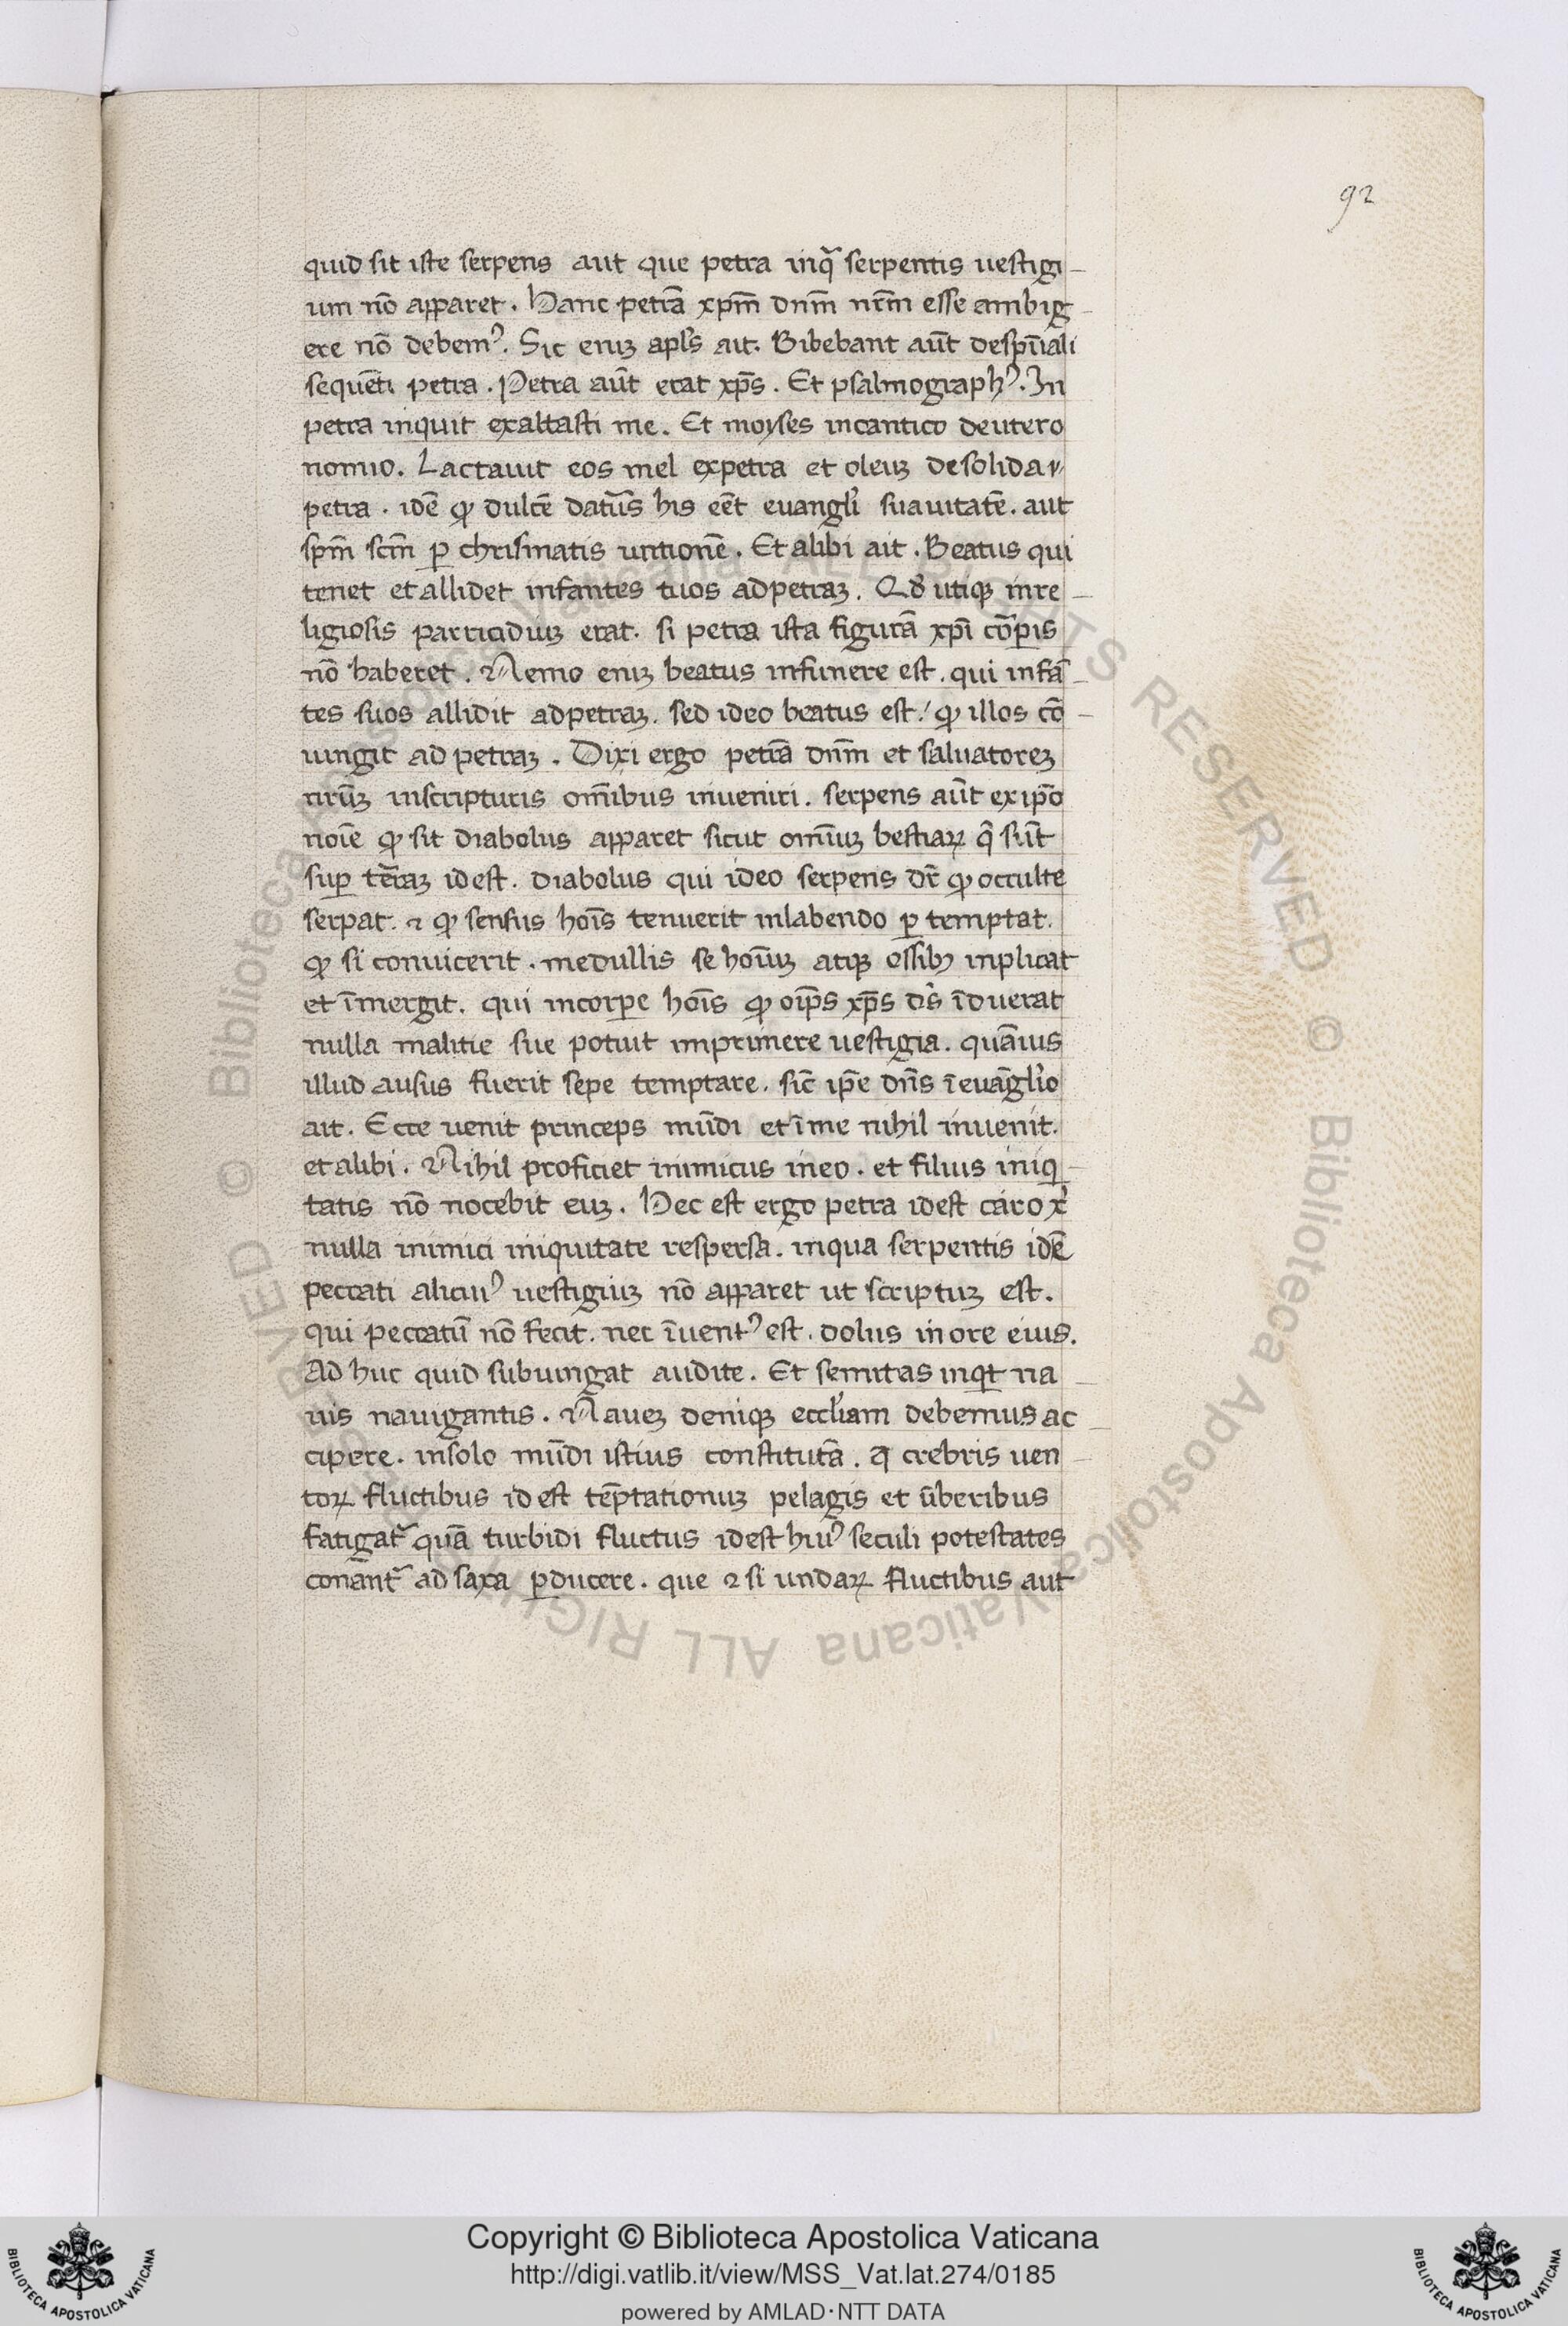 92
quid sit iste serpens aut que petra inq̃ serpentis uestigi-
um nõ apparet. Hanc petrã xpm̃ dnm̃ nrm̃ esse ambig-
ere nõ debemꝰ. Sic eniꝫ apl̃s ait. Bibebant aũt despũali
sequẽti petra. Petra aũt erat xp̃s. Et psalmographꝰ. In
petra inquit exaltasti me. Et moyses incantico deutero
nomio. Lactauit eos mel expetra et oleuꝫ desolida
petra. idẽ ꝙ dulcẽ datũs his eẽt euangl̃i suauitatẽ. aut
spm̃ scm̃ ꝑ chrismatis untionẽ. Et alibi ait. Beatus qui
tenet et allidet infantes tuos adpetraꝫ. Qđ utiqꝫ inre-
ligiosis parricidiuꝫ erat. si petra ista figurã xpĩ cõꝑis
nõ haberet. Nemo eniꝫ beatus infunere est. qui infã-
tes suos allidit adpetraꝫ. sed ideo beatus est. ꝙ illos cõ-
iungit ad petraꝫ. Dixi ergo petrã dnm̃ et saluatoreꝫ
nrũꝫ inscripturis om̃ibus inueniri. serpens aũt ex ip̃o
noĩe ꝙ sit diabolus apparet sicut omĩuꝫ bestiaꝝ q̃ sũt
suꝑ terraꝫ idest. diabolus qui ideo serpens dr̃ ꝙ occulte
serpat. ⁊ ꝙ sensus hoĩs tenuerit inlabendo ꝑ temptat.
ꝙ si conuicerit. medullis se hoĩuꝫ atqꝫ ossibꝫ inplicat
et ĩmergit. qui incorꝑe hoĩs ꝙ oĩps xp̃s ds̃ ĩduerat
nulla malitie sue potuit imprimere uestigia. quãuis
illud ausus fuerit sepe temptare. sic̃ ip̃e dñs ĩeuãgl̃io
ait. Ecce uenit princeps mũdi et ĩ me nihil inuenit.
et alibi. Nihil proficiet inimicus ineo. et filius iniq-
tatis nõ nocebit euꝫ. Hec est ergo petra idest caro x̃
nulla inimici iniquitate respersa. inqua serpentis idẽ
peccati alicuiꝰ uestigiuꝫ nõ apparet ut scriptuꝫ est.
qui peccatũ nõ fecit. nec ĩuentꝰ est. dolus in ore eius.
Ad huc quid subiungat audite. Et semitas inqt̃ na-
uis nauigantis. Naueꝫ deniqꝫ eccl̃iam debemus ac-
cipere. insolo mũdi istius constitutã. q̃ crebris uen-
toꝝ fluctibus id est tẽptationuꝫ pelagis et ũberibus
fatigat᷑ quã turbidi fluctus idest huiꝰ seculi potestates
conãnt᷑ ad saxa ꝑducere. que ⁊ si undaꝝ fluctibus aut
Copyright © Biblioteca Apostolica Vaticana
http://digi.vatlib.it/view/MSS_Vat.lat.274/0185
powered by AMLAD·NTT DATA